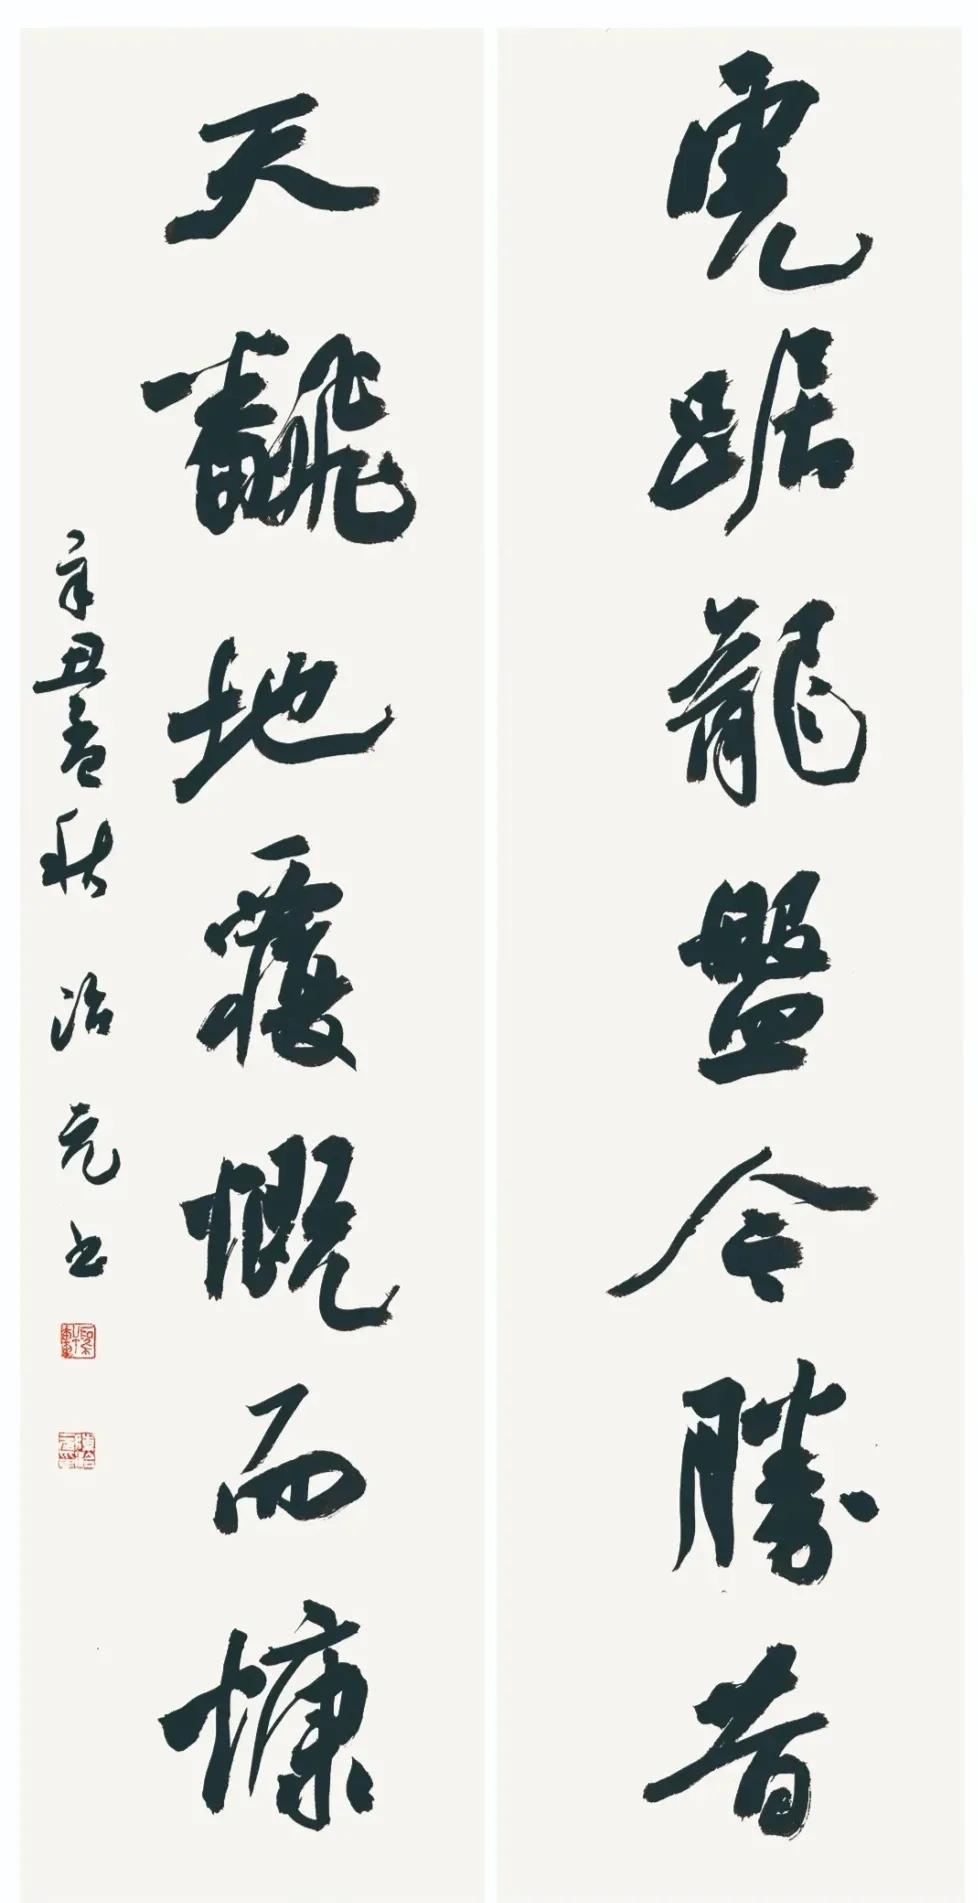 虎踞龍盤今勝昔
天翻地覆慨而慷
辛丑秋治元书